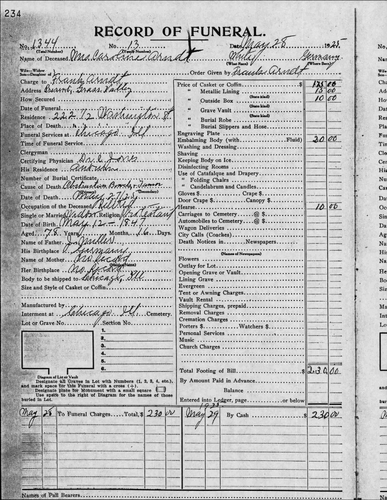 234
RECORD OF FUNERAL.
No. 1344 No. 13 Date May 28 1925
Name of Deceased Mrs Caroline Arndt White Germany
Charge to Frank Arndt Order Given by Frank Arndt
Address Grass Valley
How Secured
Date of Funeral
Residence 222 1/2 Washington St
Place of Death
Funeral Services at Chicago Ill
Time of Funeral Service
Clergyman
Certifying Physician Dr. C. Jones
His Residence
Number of Burial Certificate
Cause of Death
Date of Death May 27/25
Occupation of the Deceased
Single or Married Widow Religion
Date of Birth May 12 - 1847
Aged 78 Years Months 16 Days
Name of Father J. Miller
His Birthplace Germany
Name of Mother No record
Her Birthplace No record
Body to be shipped to Chicago Ill
Size and Style of Casket or Coffin
Manufactured by
Interment at Chicago Ill Cemetery.
Lot or Grave No. Section No.
1
2
3
4
5
6
Diagram of Lot or Vault
Designate all Graves in Lot with Numbers (1, 2, 3, 4, etc.), and mark space for this Funeral with a cross (+).
Designate place for Monument with a small square □
Use spots to the right of Diagram for the names of those buried in Lot.
Price of Casket or Coffin 175 00
" Metallic Lining 15 00
" Outside Box 10 00
" Grave Vault
" Burial Robe
" Burial Slippers and Hose
Engraving Plate
Embalming Body (with Fluid) 20 00
Washing and Dressing
Shaving
Keeping Body on Ice
Disinfecting Rooms
Use of Catafalque and Drapery
" Folding Chairs
" Candelabrum and Candles
Gloves $ Crape $
Door Crape $ Canopy $
Hearse 10 00
Carriages to Cemetery @ $
Automobiles to Cemetery @ $
Wagon Deliveries
City Calls (Coaches)
Death Notices in Newspapers
(Names of Newspapers)
Flowers
Outlay for Lot
Opening Grave or Vault
Lining Grave
Evergreen
Tent or Awning Charges
Vault Rental
Shipping Charges, prepaid
Removal Charges
Cremation Charges
Porters $ Watchers $
Personal Services
Music
Church Charges
Total Footing of Bill 230 00
By Amount Paid in Advance
Balance
Entered into Ledger, page or below
May 28 To Funeral Charges Total, $ 230 00 May 29 By Cash 230 00
Names of Pall Bearers